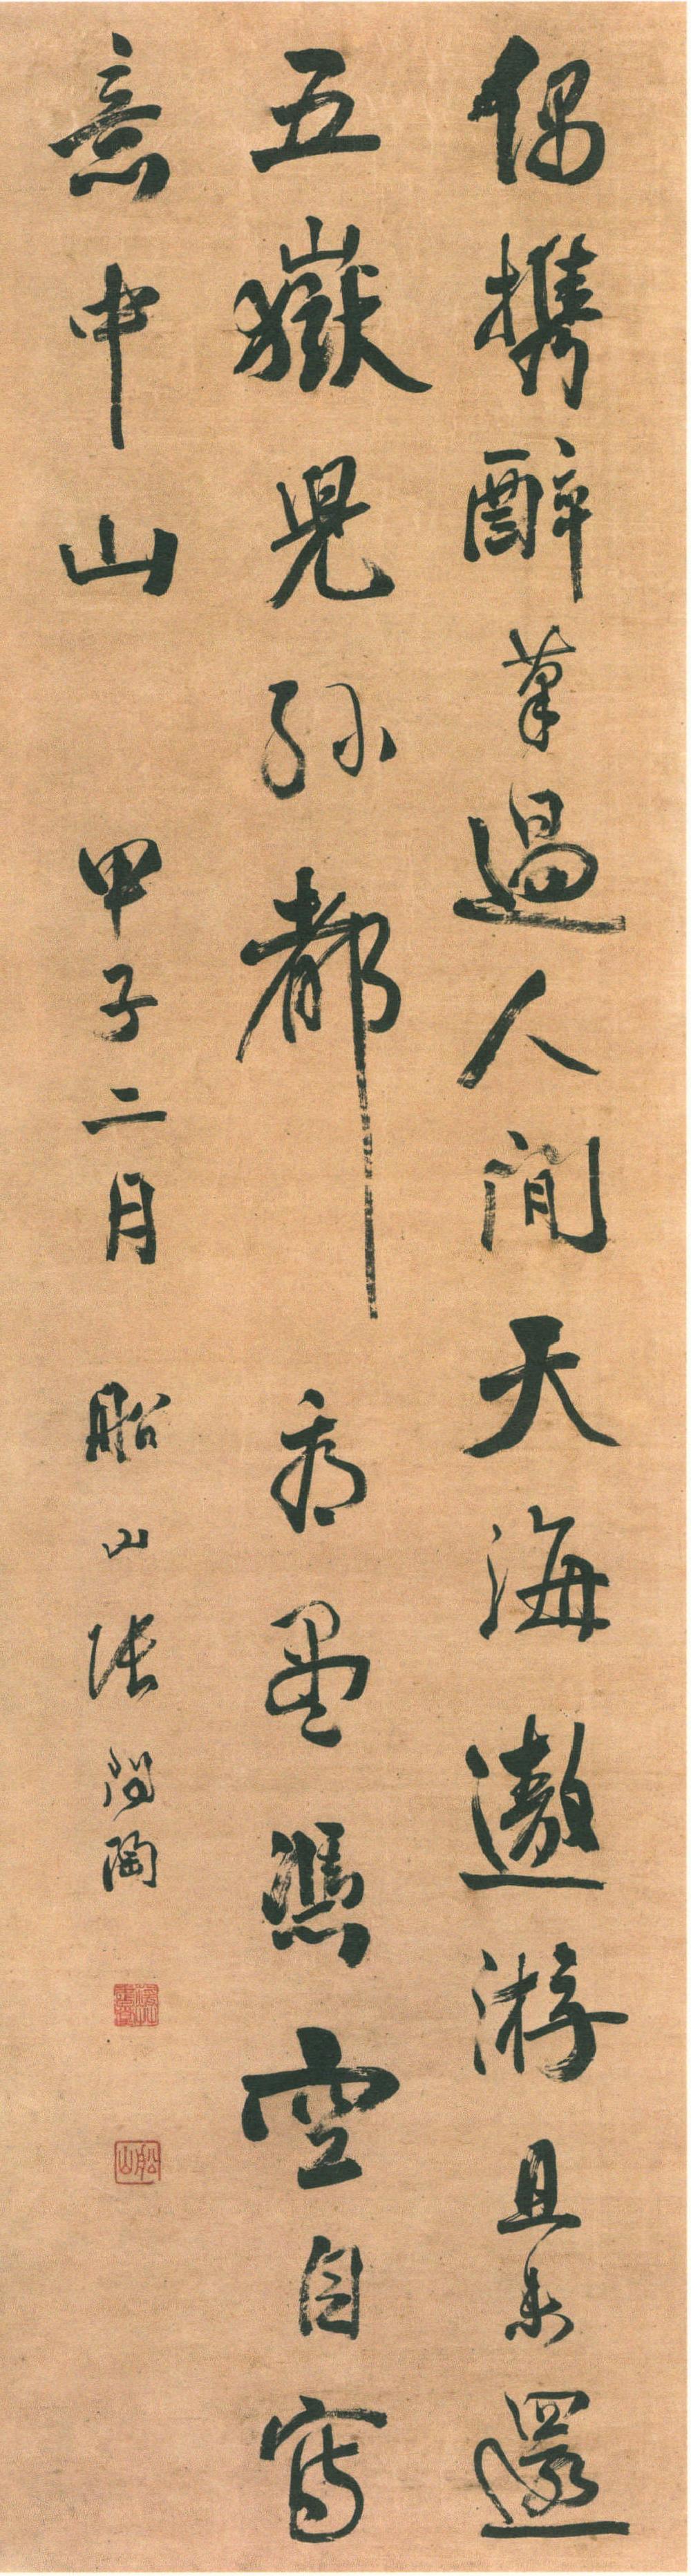 偶攜醉筆過人間天海遨游且未還
五嶽兒孫都看盡憑空自寫
意中山 甲子二月 船山張問陶
船山